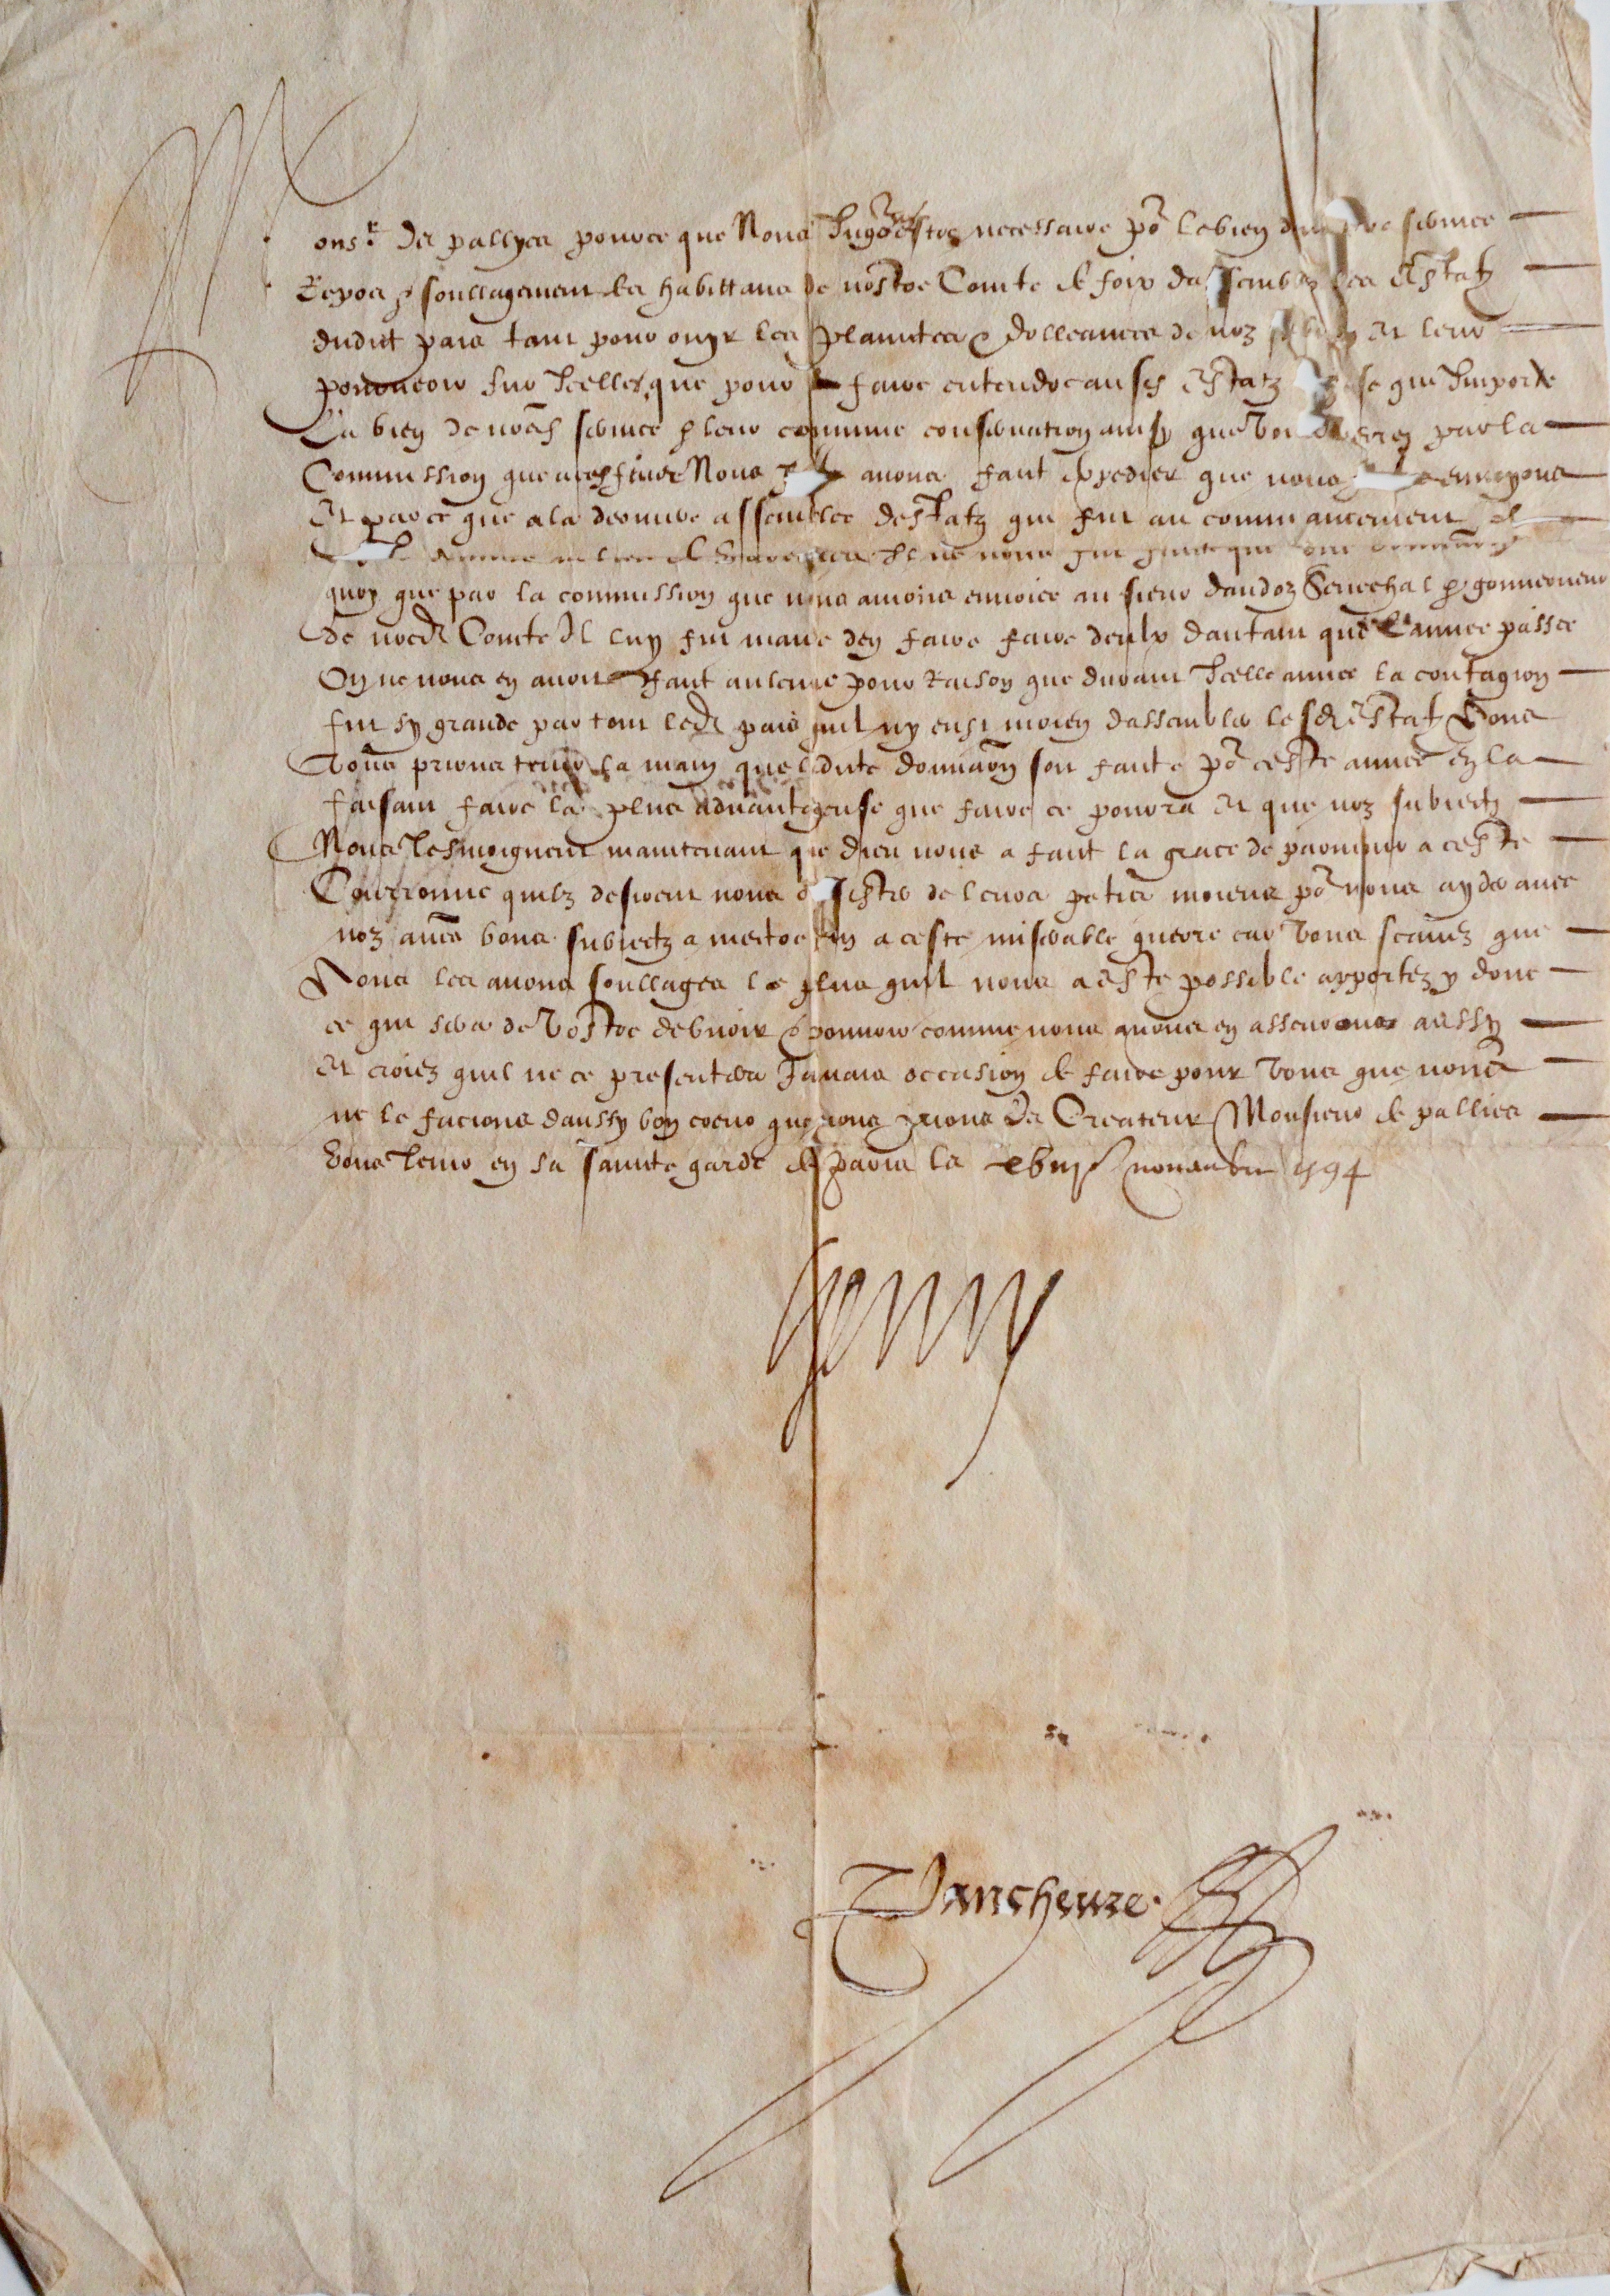 Monsr de pallyes pource que Nous Jugeons estre necessaire po le bien de nostre service
Repos & soullagement des habittans de nostre Comte de foix dassembler les estatz
dudict pais tant pour ouyr les plainctes & dolleances de noz et leur
pourveoir sur Icelles, que pour faire entendre ausd estatz ce que Importe
Le bien de nred service & leur commune conservation ainsy que vous verrez par la
Commission que a ces fins Nous avons faict expedier que nous envoyons
Et parce que a la derniere assemblee destatz qui fut au commancement
Il ne nous fut
quoy que par la commission que nous avions envoiee au sieur daudoz Seneschal & gouverneur
de nred Comte Il luy fut mandé den faire faire deulx dautant que Lannee passee
On ne nous en avoit faict aulcune pour Raison que durant Icelle annee la contagion
fut sy grande par tout led pais quil ny eust moien dassembler lesd estatz Nous
Vous prions tenir la main que ladicte donnaon soit faicte po ceste annee en la
faisant faire la plus advantageuse que faire ce pourra et que noz subiectz
Nous Tesmoignent maintenant que dieu nous a faict la grace de parvenir a ceste
Couronne quilz desirent nous assister de leurs petis moiens po nous ayder avec
noz aues bons subiectz a mectre fin a ceste miserable guerre car vous scavez que
Nous les avons soullages le plus quil nous a este possible apportez y donc
ce qui sera de vostre debvoir & pouvoir comme nous nous en asseurons aussy
Et croiez quil ne ce presentera Jamais occasion de faire pour vous que nous
ne le facions daussy bon coeur que nous prions Le Createur Monsieur de pallies
vous Tenir en sa saincte garde de paris le novembre 1594
Henry